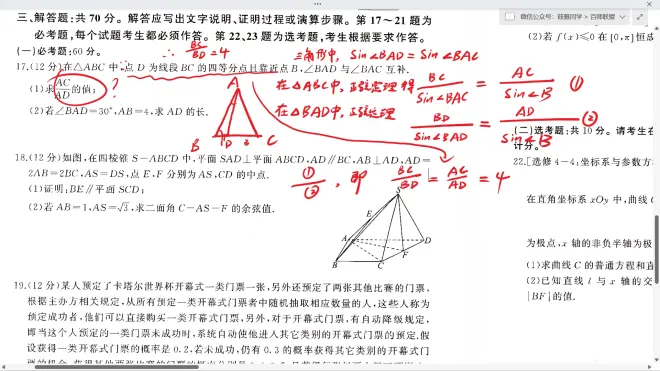 微信公众号：筱雅同学 | 百师联盟
三、解答题:共 70 分. 解答应写出文字说明、证明过程或演算步骤。第 17～21 题为
必考题,每个试题考生都必须作答。第 22、23 题为选考题,考生根据要求作答。
(一)必考题:60分.
∴ BC/BD = 4
三角形中, Sin∠BAD = Sin∠BAC
17.(12 分)在△ABC 中,点 D 为线段 BC 的四等分点且靠近点 B,∠BAD 与∠BAC 互补.
(1)求AC/AD的值;
?
在△ABC中, 正弦定理得 BC/Sin∠BAC = AC/Sin∠B ①
(2)若∠BAD=30°,AB=4,求 AD 的长.
在△BAD中, 正弦定理 BD/Sin∠BAD = AD/Sin∠B ②
A
B D C
18.(12 分)如图,在四棱锥 S-ABCD 中,平面 SAD⊥平面 ABCD,AD∥BC,AB⊥AD,AD=
2AB=2BC,AS=DS,点 E,F 分别为 AS,CD 的中点.
①/②, 即 BC/BD = AC/AD = 4
(1)证明:BE∥平面 SCD;
(2)若 AB=1,AS=√3,求二面角 C-AS-F 的余弦值.
S
E
A D
F
B C
19.(12 分)某人预定了卡塔尔世界杯开幕式一类门票一张,另外还预定了两张其他比赛的门票.
根据主办方相关规定,从所有预定一类开幕式门票者中随机抽取相应数量的人,这些人称为
预定成功者,他们可以直接购买一类开幕式门票,另外,对于开幕式门票,有自动降级规定,
即当这个人预定的一类门票未成功时,系统自动使他进入其它类别的开幕式门票的预定,假
设获得一类开幕式门票的概率是 0.2,若未成功,仍有 0.3 的概率获得其它类别的开幕式门
(2)若 f(x)≤0 在[0,π]恒成
(二)选考题:共 10 分. 请考生在
计分.
22.[选修 4-4:坐标系与参数方
在直角坐标系 xOy 中,曲线 C
为极点,x 轴的非负半轴为极
(1)求曲线 C 的普通方程和直
(2)已知直线 l 与 x 轴的交
|BF|的值.